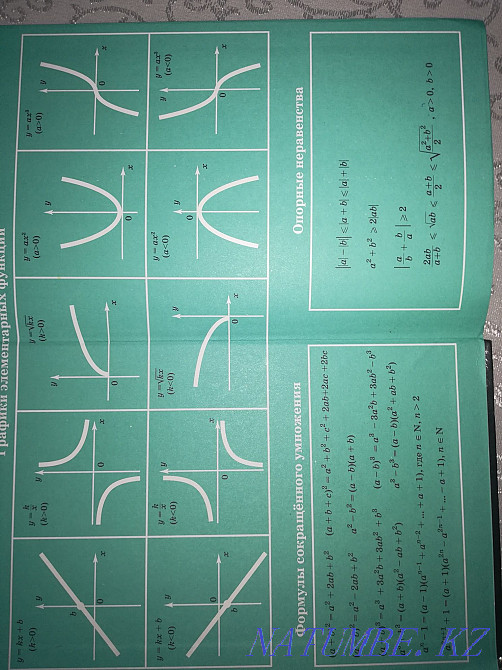 Графики элементарных функций
y = kx + b
(k>0)
y = k/x
(k>0)
y = √kx
(k>0)
y = ax²
(a>0)
y = ax³
(a>0)
y = kx + b
(k<0)
y = k/x
(k<0)
y = √kx
(k<0)
y = ax²
(a<0)
y = ax³
(a<0)
Формулы сокращённого умножения
(a + b)² = a² + 2ab + b² (a + b + c)² = a² + b² + c² + 2ab + 2ac + 2bc
(a − b)² = a² − 2ab + b² a² − b² = (a − b)(a + b)
(a + b)³ = a³ + 3a²b + 3ab² + b³ (a − b)³ = a³ − 3a²b + 3ab² − b³
a³ + b³ = (a + b)(a² − ab + b²) a³ − b³ = (a − b)(a² + ab + b²)
− 1 = (a − 1)(aⁿ⁻¹ + aⁿ⁻² + ... + a + 1), где n ∈ N, n > 2
+ 1 = (a + 1)(a²ⁿ − a²ⁿ⁻¹ + ... − a + 1), n ∈ N
Опорные неравенства
||a| − |b|| ⩽ |a + b| ⩽ |a| + |b|
a² + b² ⩾ 2|ab|
|a/b + b/a| ⩾ 2
2ab/(a+b) ⩽ √ab ⩽ (a+b)/2 ⩽ √((a²+b²)/2), a > 0, b > 0
NATUMBE.KZ